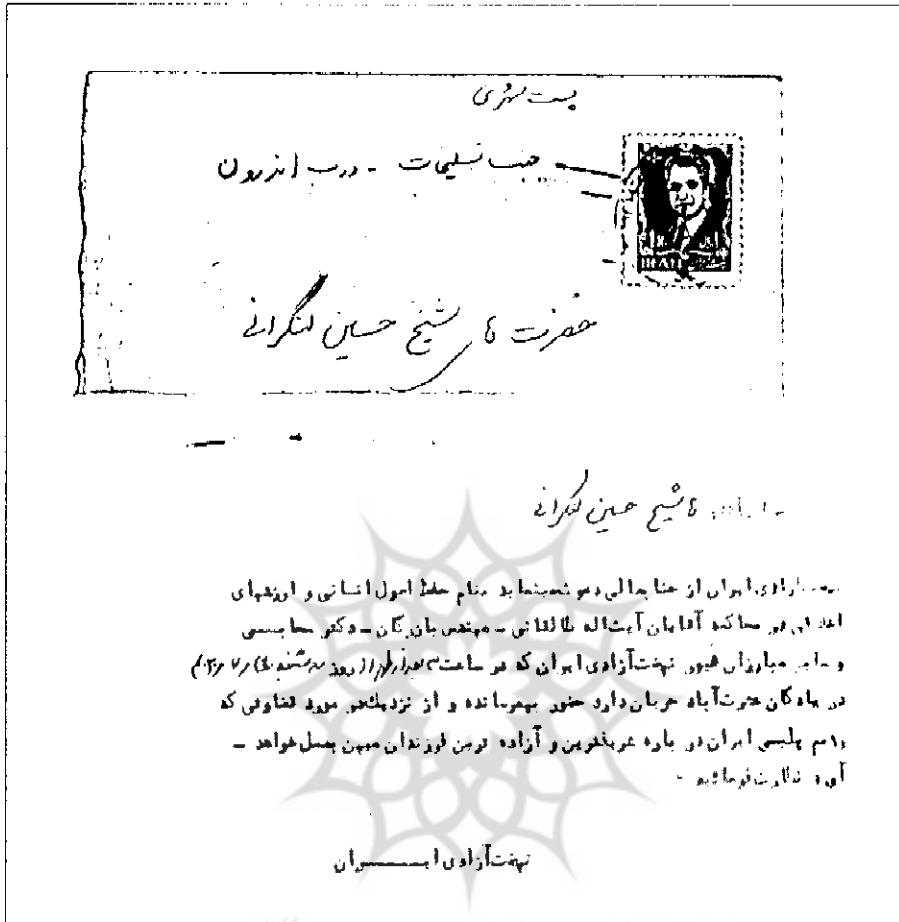 پست شهری
جنب تسلیحات - درب اندرون
IRAN
حضرت شیخ حسین لنکرانی
شیخ حسین لنکرانی
آزادی ایران از جنابعالی دعوت مینماید بنام حفظ اصول انسانی و ارزشهای
در محاکمه آقایان آیت‌اله طالقانی - مهندس بازرگان - دکتر سحابی
و سایر مبارزان غیور نهضت‌آزادی ایران که در ساعت ۳ بعدازظهر روز سه‌شنبه
در پادگان عشرت‌آباد جریان دارد حضور بهمرسانده و از نزدیک در مورد قضاوتی که
رژیم پلیسی ایران در باره شریفترین و آزاده ترین فرزندان میهن بعمل خواهد -
آورد نظارت فرمائید -
نهضت‌آزادی ایــــران